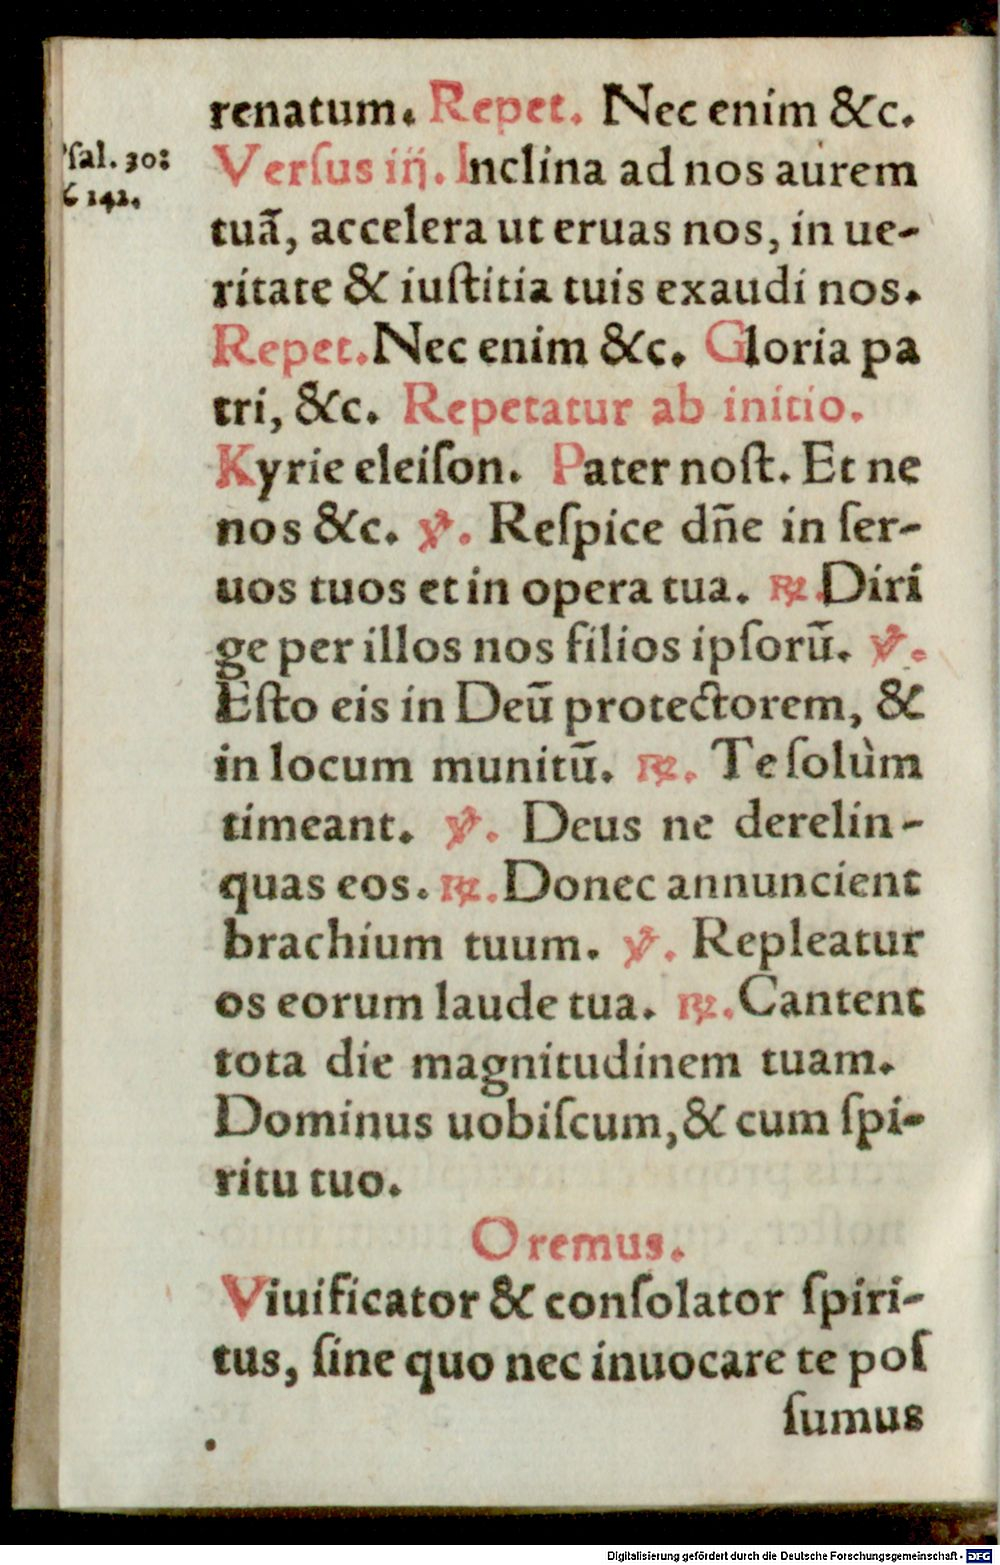 renatum. Repet. Nec enim &c.
ſal. 30:
142.
Verſus iij. Inclina ad nos aurem
tuã, accelera ut eruas nos, in ue-
ritate & iuſtitia tuis exaudi nos.
Repet. Nec enim &c. Gloria pa
tri, &c. Repetatur ab initio.
Kyrie eleiſon. Pater noſt. Et ne
nos &c. ℣. Reſpice dñe in ſer-
uos tuos et in opera tua. ℟. Diri
ge per illos nos filios ipſorũ. ℣.
Eſto eis in Deũ protectorem, &
in locum munitũ. ℟. Te ſolùm
timeant. ℣. Deus ne derelin-
quas eos. ℟. Donec annuncient
brachium tuum. ℣. Repleatur
os eorum laude tua. ℟. Cantent
tota die magnitudinem tuam.
Dominus uobiſcum, & cum ſpi-
ritu tuo.
Oremus.
Viuificator & conſolator ſpiri-
tus, ſine quo nec inuocare te poſ
ſumus
Digitalisierung gefördert durch die Deutsche Forschungsgemeinschaft - DFG